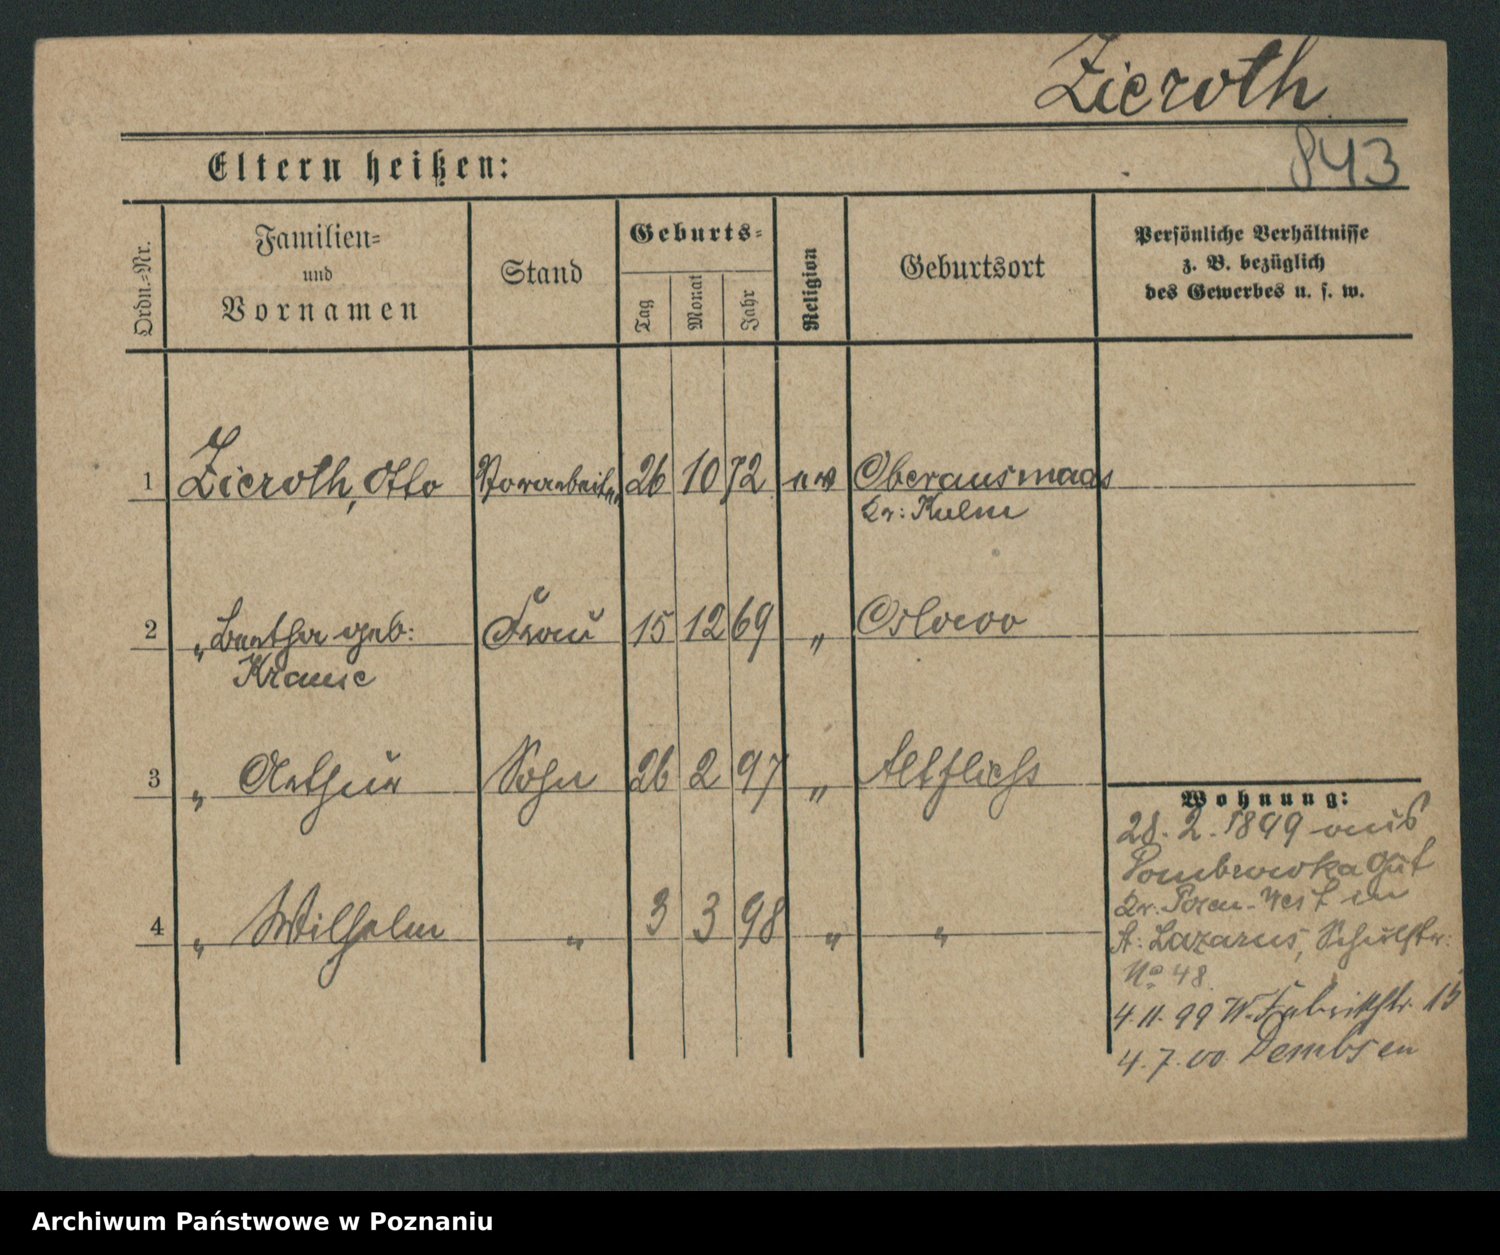 Zieroth
843
Eltern heißen:
Ordn.-Nr.
Familien-
und
Vornamen
Stand
Geburts-
Tag
Monat
Jahr
Religion
Geburtsort
Persönliche Verhältnisse
z. B. bezüglich
des Gewerbes u. s. w.
1 Zieroth, Otto Vorarbeiter 26 10 72 ev Oberausmaas
Kr: Kulm
2 „ Bertha geb: Frau 15 12 69 „ Oslowo
Krause
3 „ Arthur Sohn 26 2 97 „ Altfließ
4 „ Wilhelm „ 3 3 98 „ „
Wohnung:
28. 2. 1899 aus
Dombrowka Gut
Kr. Posen-West in
St: Lazarus, Schulstr:
No 48.
4.11.99 W. Fabrikstr. 15
4.7.00 Dembsen
Archiwum Państwowe w Poznaniu